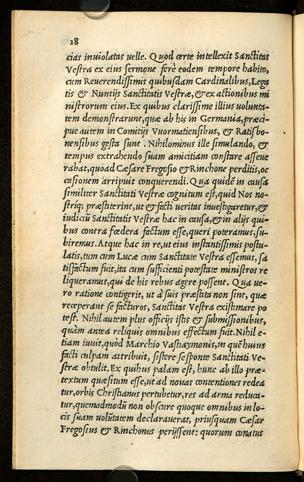 28
cias inuiolatas uelle. Quod certe intellexit Sanctitas
Vestra ex eius sermone ferè eodem tempore habito,
cum Reuerendissimis quibusdam Cardinalibus, Lega
tis & Nuntijs Sanctitatis Vestræ, & ex actionibus mi
nistrorum eius. Ex quibus clarissime illius uolunta-
tem demonstrarunt, quæ ab his in Germania, præci-
pue autem in Comitijs Vuormatiensibus, & Ratisbo-
nensibus gesta sunt. Nihilominus ille simulando, &
tempus extrahendo suam amicitiam constare asseue
rabat, quoad Cæsare Fregosio & Rinchone perditis, oc
casionem arripuit conquerendi. Qua quidē in causa
similiter Sanctitati Vestræ cognitum est, quid Nos no-
striq; præstiterint, ut facti ueritas inuestigaretur, &
iudiciū Sanctitatis Vestræ hac in causa, & in alijs qui-
bus contra fœdera factum esse, queri poteramus, su-
biremus. Atque hac in re, ut eius instantissimis postu-
latis, tum cum Lucæ cum Sanctitate Vestra essemus, sa
tisfactum fuit, ita cum sufficienti potestate ministros re
liqueramus, qui de his rebus agere possent. Qua ue-
ro ratione contigerit, ut à suis præstita non sint, quæ
receperant se facturos, Sanctitas Vestra existimare po
test. Nihil autem plus officijs istis & submissionibus,
quàm antea reliquis omnibus effectum fuit. Nihil e-
tiam iuuit, quòd Marchio Vastiaymonis, in quē huius
facti culpam attribuit, sistere se sponte Sanctitati Ve-
stræ obtulit. Ex quibus palam est, hunc ab illo præ-
textum quæsitum esse, ut ad nouas contentiones redea
tur, orbis Christianus pertubetur, res ad arma reduca-
tur, quemadmodū non obscure quoque omnibus in lo-
cis suam uolūtatem declarauerat, priusquam Cæsar
Fregosius & Rinchonus perijssent: quorum conatus